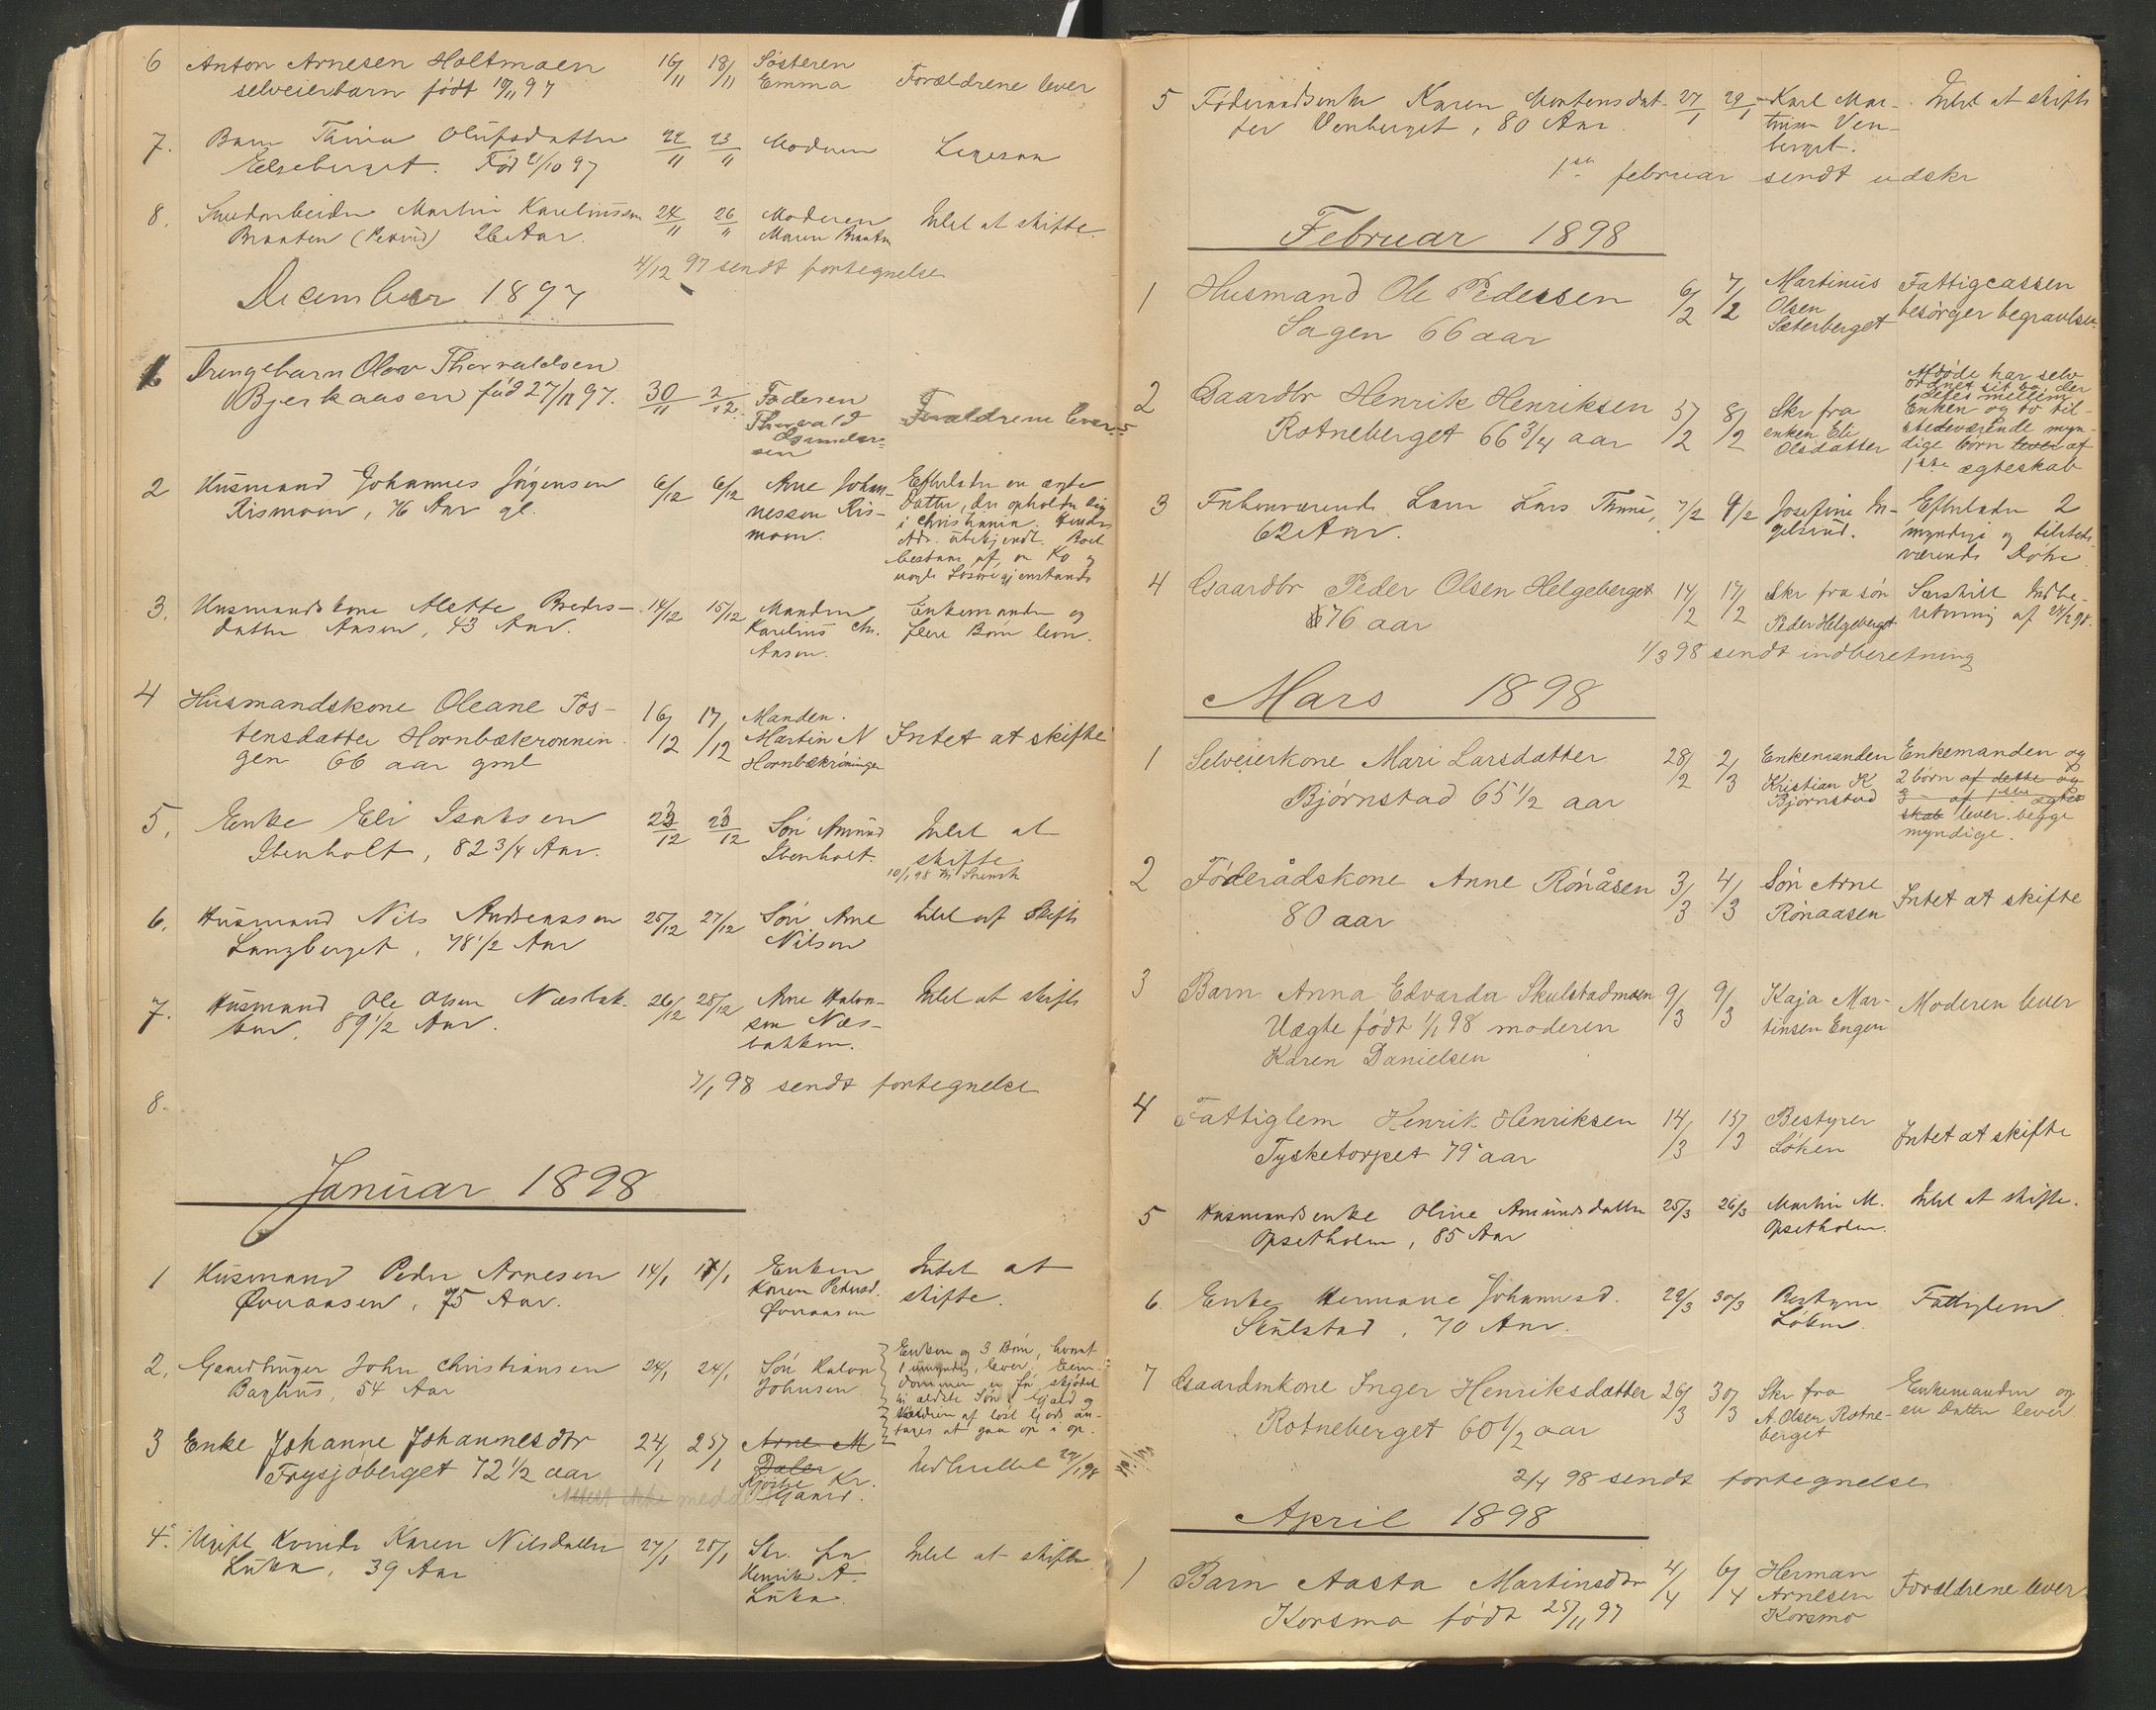 6 Anton Arnesen Holtmoen 16/11 18/11 Søsteren Forældrene lever
selveierbarn født 10/11 97 Emma
7. Barn Thina Olufsdatter 22/11 23/11 Modern
Eelseberget. Fød 21/10 97
8. Martin Karelinussen 24/11 26/11 Moderen Intet at skifte
Braaten 26 Aar. Maren Braaten
4/12 97 sendt fortegnelse
December 1897
1 Drengebarn Olav Thorvaldsen
Bjerkaasen fød 27/11 97. 30/11 2/12 Faderen Forældrene lever
Thorvald
2 Husmand Johannes Jörgensen 6/12 6/12 Arne Johan- Efterlader en ægte
Kismoen, 76 Aar gl. nessen Kis- Datter, der opholder sig
moen. i Christiania. Hendes
Adr. ubekjendt. Boet
bestaar af en Ko og
nogle Løsøregjenstande
3. Husmandskone Alette Breders- 14/12 15/12 Manden Enkemanden og
datter Aasen, 43 Aar. Karelius Chr. flere Børn lever.
Aasen.
4 Husmandskone Oleane Tos- 16/12 17/12 Manden.
tensdatter Hornbækrønnin Martin N Intet at skifte
gen 66 aar gml Hornbækrøningen
5. Enke Eli Isaksen 23/12 23/12 Søn Amund Intet at
Ibenholt, 82 3/4 Aar. Ibenholt. skifte
10/1 98
6. Husmand Nils Andreassen 25/12 27/12 Søn Arne Intet at skifte
Langberget, 78 1/2 Aar Nilsen
7. Husmand Ole Olsen Næsbak- 26/12 28/12 Arne Halvor- Intet at skifte
ken, 89 1/2 Aar. sen Næs-
bakken.
7/1 98 sendt fortegnelse
8.
Januar 1898
1 Husmand Peder Arnesen 14/1 17/1 Enken Intet at
Øveraasen, 75 Aar. Karen Pedersd. skifte.
Øveraasen
2. Gaardbruger John Christiansen 24/1 24/1 Søn Halvor Enken og 3 Børn, hvoraf
Baghus, 54 Aar Johnsen 1 umyndig, lever. Eien-
dommen er skjødet
til ældste Søn. Gjæld og
Værdien af løst Gods an-
tages at gaa op i op.
3 Enke Johanne Johannesdtr 24/1 25/1 Arne M
Frysjøberget 72 1/2 aar Daler Indberettet 27/1 98
Kr.
Attest ikke meddelt Gaard.
4. Ugift Kvinde Karen Nilsdatter 27/1 28/1 Skr. fra Intet at skifte
Lüka, 39 Aar Henrik A.
Lüka.
5 Føderaadsenke Karen Mortensdat- 27/1 29/1 Karl Mar- Intet at skifte
ter Venberget, 80 Aar. tinsen Ven-
berget.
1ste februar sendt udskr
Februar 1898
1 Husmand Ole Pedersen 6/2 7/2 Martinius Fattigcassen
Sagen 66 aar Olsen besørger begravelsen.
Sæterberget
2 Gaardbr Henrik Henriksen 5/2 8/2 Skr fra Afdøde har selv
Rotneberget 66 3/4 aar enken Eli ordnet sit bo, der
Olsdatter deles mellem
Enken og to til-
stedeværende myn-
dige børn lever af
1ste ægteskab
3 Lars Thune, 7/2 9/2 Josefine In- Efterlader 2
62 Aar. gelsrud. myndige og tilsteds-
værende Døtre
4 Gaardbr Peder Olsen Helgeberget 14/2 17/2 Skr fra søn Særskilt Indbe-
76 aar Peder Helgeberget retning af 24/2 98.
1/3 98 sendt indberetning
Mars 1898
1 Selveierkone Mari Larsdatter 28/2 2/3 Enkemanden Enkemanden og
Bjørnstad 65 1/2 aar Kristian K 2 børn af dette og
Bjørnstad 3 - af 1ste ægte
skab lever. begge
myndige.
2 Föderådskone Anne Rönåsen 3/3 4/3 Søn Arne Intet at skifte
80 aar Rønaasen
3 Barn Anna Edvarda Skulstadmoen 9/3 9/3 Kaja Mar- Moderen lever
Uægte født 1/1 98 moderen tinsen Engen
Karen Danielsen
4 Fattiglem Henrik Henriksen 14/3 15/3 Bestyrer Intet at skifte
Tysketorpet 79 aar Løken
5 Husmandsenke Oline Amundsdatter 25/3 26/3 Martin M. Intet at skifte.
Opsetholm, 85 Aar Opsetholm.
6 Enke Hermane Johannesd. 29/3 30/3 Bestyrer Fattiglem
Skulstad, 70 Aar. Løken
7 Gaardmkone Inger Henriksdatter 26/3 30/3 Skr fra Enkemanden og
Rotneberget 60 1/2 aar A. Olsen Rotne- en Datter lever
berget
2/4 98 sendt fortegnelse
April 1898
1 Barn Aasta Martinsdtr 4/4 6/4 Herman Forældrene lever
Korsmo født 25/11 97 Arnesen
Korsmo